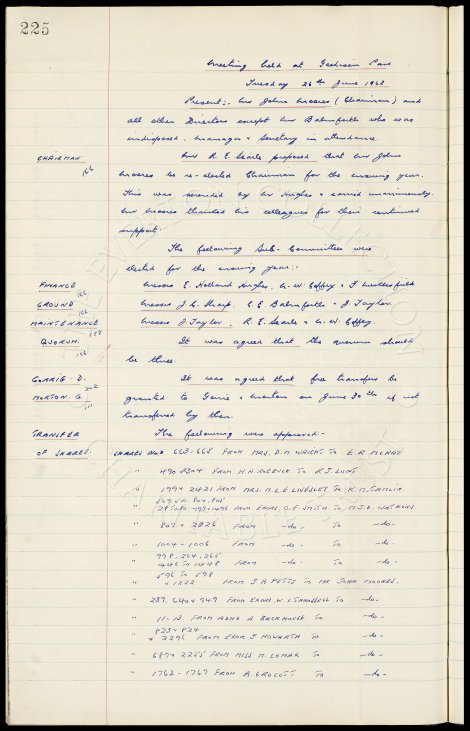 225
Meeting held at Goodison Park
Tuesday 26th June 1962
Present:- Mr John Moores (Chairman) and
all other Directors except Mr Balmforth who was
indisposed. Manager & Secretary in attendance.
CHAIRMAN. Mr R. E. Searle proposed that Mr John
166
Moores be re-elected Chairman for the ensuing year.
This was seconded by Mr Hughes & carried unanimously.
Mr Moores thanked his colleagues for their continued
support.
The following Sub. Committees were
elected for the ensuing year:-
FINANCE Messrs E. Holland Hughes, C.W. Coffey & F. Micklesfield
166
GROUND Messrs J. C. Sharp, C. E. Balmforth & J. Taylor.
166
MAINTENANCE Messrs J. Taylor, R. E. Searle & C. W. Coffey.
QUORUM. It was agreed that the quorum should
166
be three.
GARRIE - D. It was agreed that free transfers be
MORTON. G. granted to Garrie & Morton on June 30th if not
transferred by then.
TRANSFER The following were approved:-
OF SHARES. SHARES Nos 663-665 FROM MRS. D. M. WRIGHT TO E. R. MCKAY
" 490 & 304 FROM H. H. ROEBUCK TO R. J. LUNT
" 199 & 2421 FROM MRS. M. L. E LIVESLEY TO K. M. TAMLIN
" FROM EXORS. G. F. SMITH TO M. J. D. WATKINS
" 807 & 2826 FROM -do- TO -do-
" 1004 - 1006 FROM -do- TO -do-
998, 264, 265
" 1446 TO 1448 FROM -do- TO -do-
596 TO 598
" & 1222 FROM J. H. PETTS TO MR JOHN MOORES.
" 237. 640 & 949 FROM EXORS. W. I. THRELFELL TO -do-
" 11 - 13 FROM ADMX A BACKHOUSE TO -do-
823 & 824
" & 2296 FROM EXOR J. HOWARTH TO -do-
" 687 & 2255 FROM MISS M. LOMAX TO -do-
" 1762 - 1767 FROM A. GROCOTT TO -do-